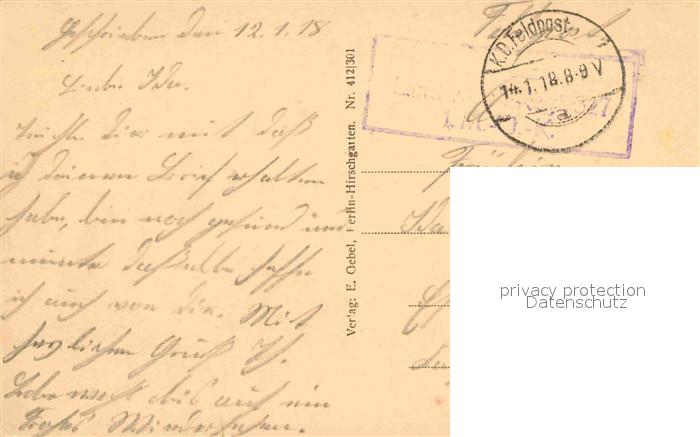 Geschrieben den 12.1.18
Liebe Ida.
Teile Dir mit daß
ich deinen Brief erhalten
habe, bin noch gesund und
munter dasselbe hoffe
ich auch von dir. Mit
herzlichem Gruß
Lebe wohl bis auf ein
Frohes Wiedersehen.
Verlag: E. Gebel, Berlin-Hirschgarten. Nr. 412|301
Feldpost
K.D. Feldpost
14.1.18.8-9V
a
Ida
privacy protection
Datenschutz